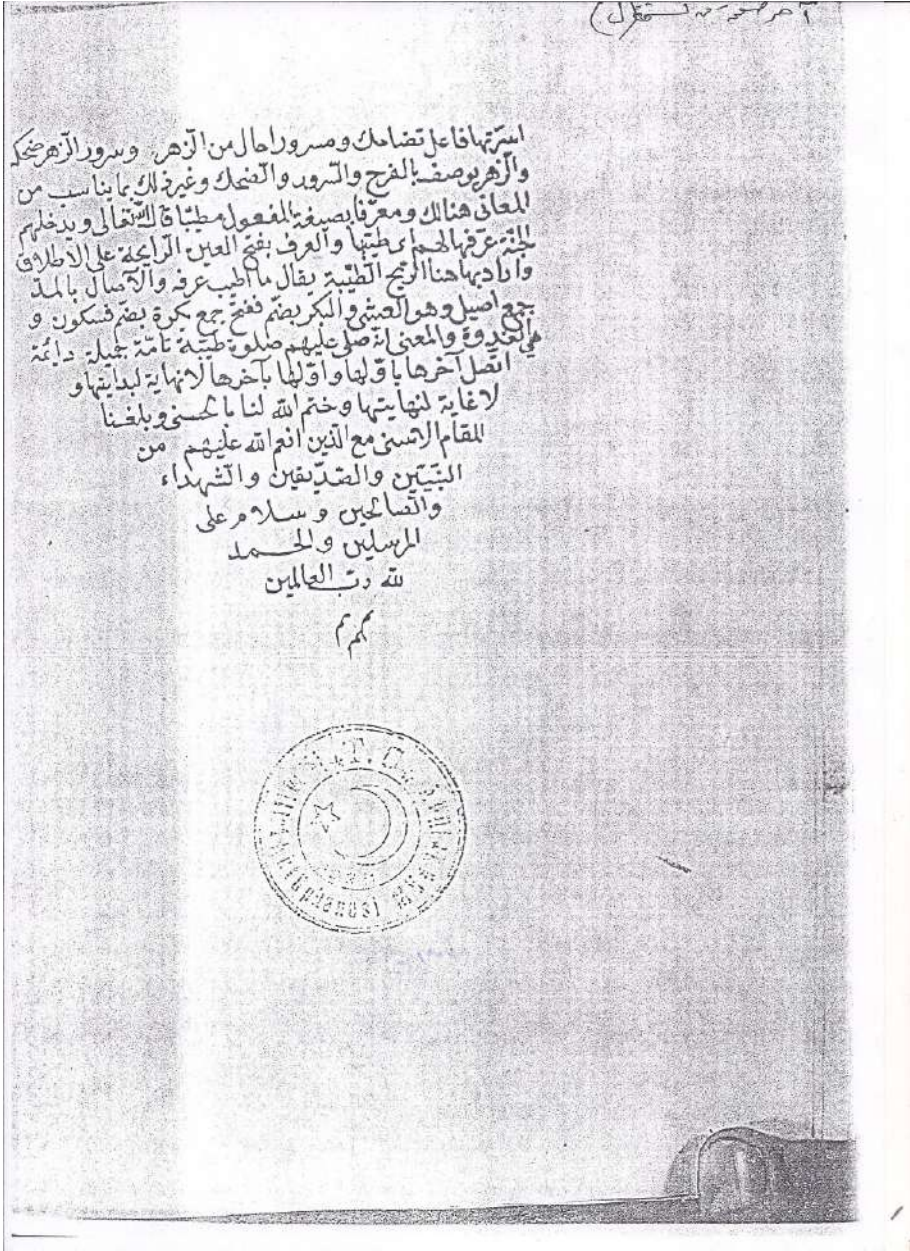 آخر صفحة من نسخة (ل)
اسرتها فاعل تضاحك ومسرورا حال من الزهر وسرور الزهر ضحكه
والزهر يوصف بالفرح والسرور والضحك وغير ذلك بما يناسب من
المعانى هنالك ومعرّفا بصيغة المفعول مطيّبا قال الله تعالى ويدخلهم
الجنة عرّفها لهم اى طيّبها والعرف بفتح العين الرايحة على الاطلاق
واراد بها هنا الريح الطيّبة يقال ما اطيب عرفه والآصال بالمدّ
جمع اصيل وهو العشى والبكر بضمّ ففتح جمع بكرة بضمّ فسكون و
هى الغدوة والمعنى انه صلى عليهم صلوة طيّبة تامّة جميلة دايمة
اتّصل آخرها باوّلها واوّلها بآخرها لا نهاية لبدايتها و
لا غاية لنهايتها وختم الله لنا بالحسنى وبلغنا
المقام الاسنى مع الذين انعم الله عليهم من
النبيّين والصدّيقين والشهداء
والصالحين وسلام على
المرسلين والحمد
لله ربّ العالمين
T. C.